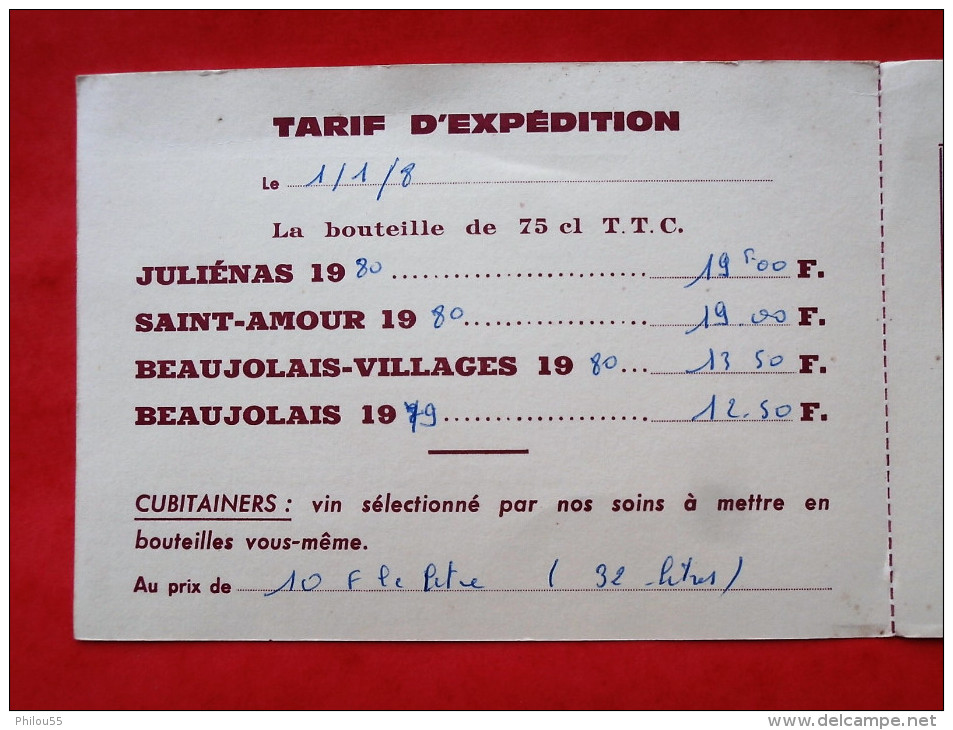 TARIF D'EXPÉDITION
Le 1/1/8
La bouteille de 75 cl T.T.C.
JULIÉNAS 19 80 19,00 F.
SAINT-AMOUR 19 80 19.00 F.
BEAUJOLAIS-VILLAGES 19 80 13 50 F.
BEAUJOLAIS 19 79 12.50 F.
CUBITAINERS : vin sélectionné par nos soins à mettre en
bouteilles vous-même.
Au prix de 10 F le litre ( 32 litres )
Philou55
www.delcampe.net